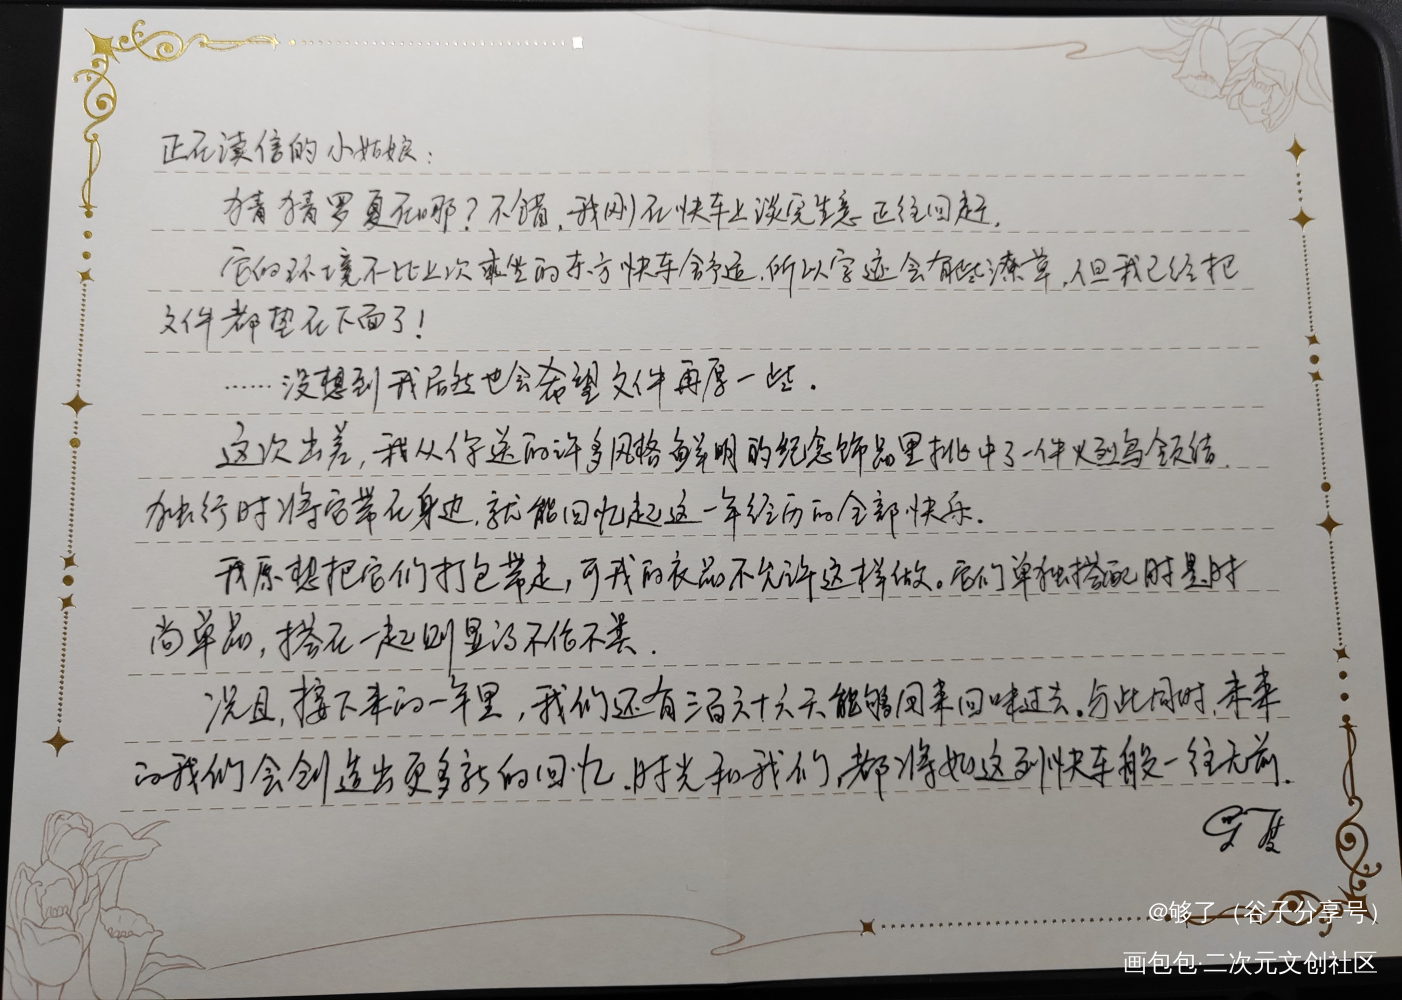 正在读信的小姑娘：
猜猜罗夏在哪？不错，我刚在快车上谈完生意正往回赶。
它的环境不比上次乘坐的东方快车舒适，所以字迹会有些潦草，但我已经把
文件都垫在下面了！
……没想到我居然也会希望文件再厚一些。
这次出差，我从你送的许多风格鲜明的纪念饰品里挑中了一件火烈鸟领结，
独行时将它带在身边，就能回忆起这一年经历的全部快乐。
我原想把它们打包带走，可我的衣品不允许这样做。它们单独搭配时是时
尚单品，搭在一起则显得不伦不类。
况且，接下来的一年里，我们还有三百六十六天能够回来回味过去。与此同时，未来
的我们会创造出更多新的回忆。时光和我们，都将如这列快车般一往无前。
罗夏
@够了（谷子分享号）
画包包·二次元文创社区